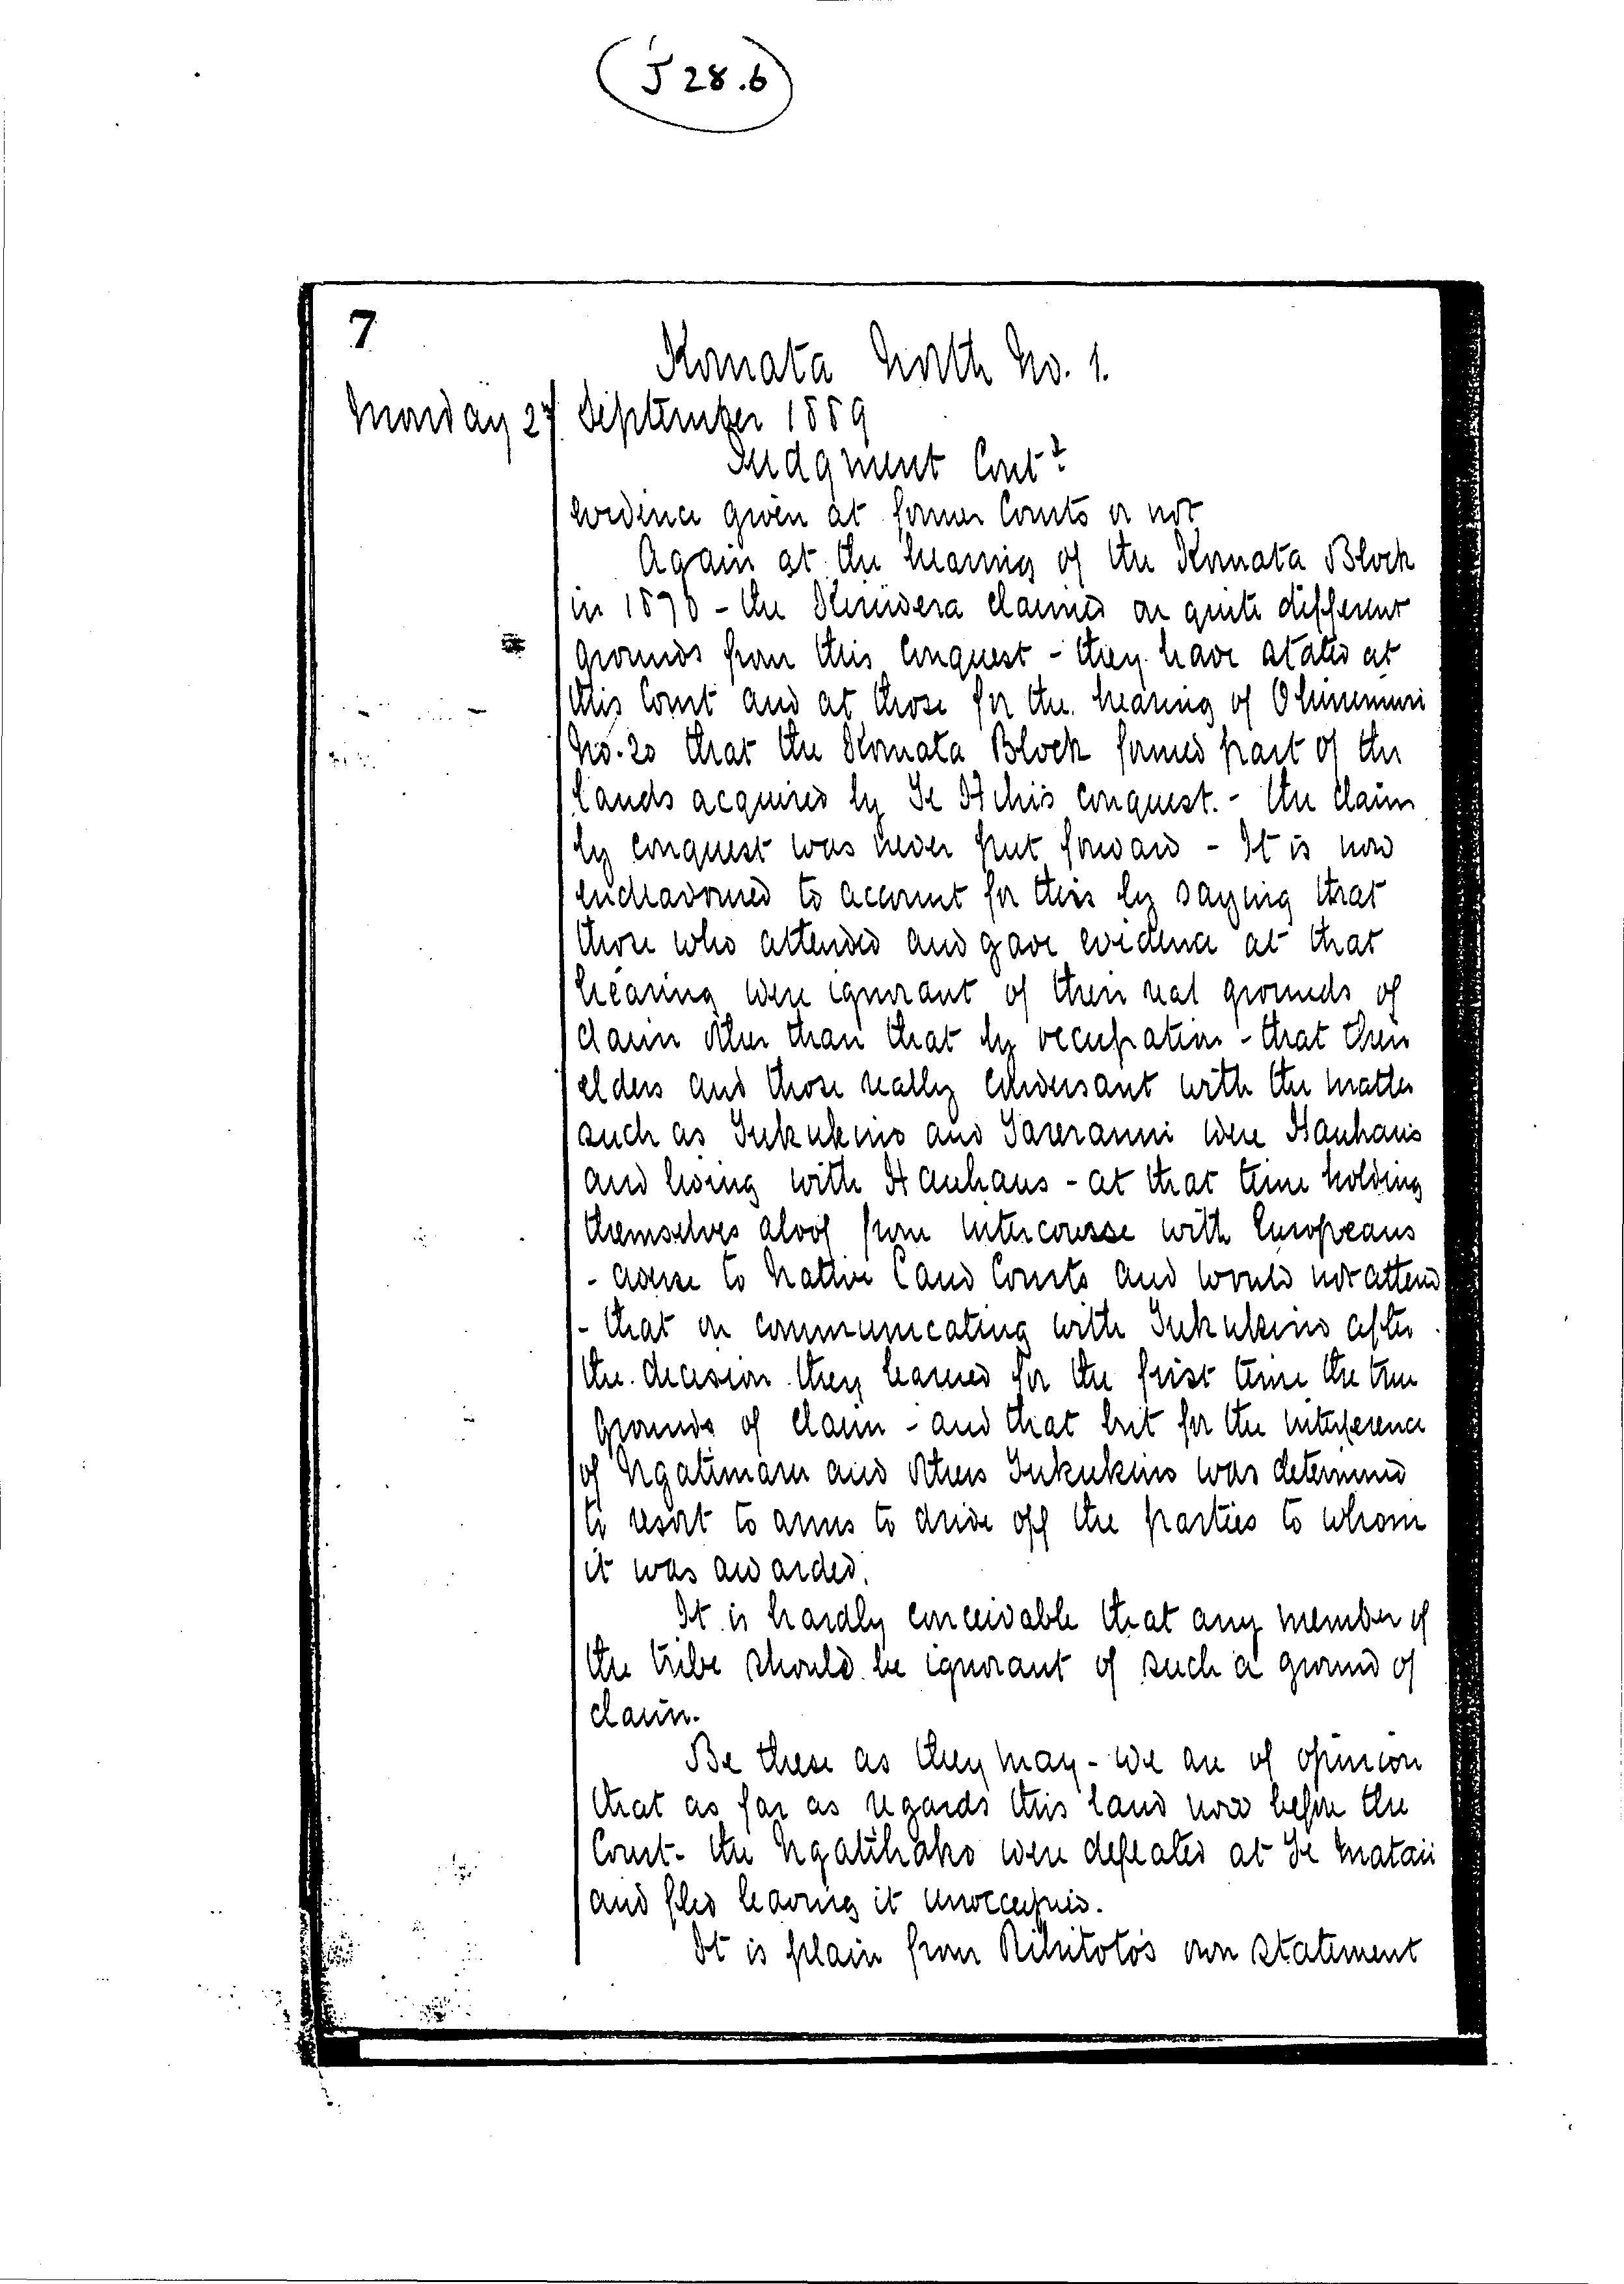 J 28.6
7
Komata North No. 1.
Monday 27 September 1889
Judgment Cont<sup>d</sup>
evidence given at former Courts or not
Again at the hearing of the Komata Block
in 1870 - the Kiriwera claimed on quite different
grounds from this conquest - they have stated at
this Court and at those for the hearing of Ohinemuri
No. 20 that the Komata Block formed part of the
lands acquired by Te Ahi's conquest. - the claim
by conquest was never put forward - It is now
endeavoured to account for this by saying that
those who attended and gave evidence at that
hearing were ignorant of their real grounds of
claim other than that by occupation - that their
elders and those really conversant with the matter
such as Tukukino and Tareranui were Hauhaus
and living with Hauhaus - at that time holding
themselves aloof from intercourse with Europeans
- averse to Native Land Courts and would not attend
- that on communicating with Tukukino after
the decision they learned for the first time the true
grounds of claim - and that but for the interference
of Ngatimaru and others Tukukino was determined
to resort to arms to drive off the parties to whom
it was awarded.
It is hardly conceivable that any member of
the tribe should be ignorant of such a ground of
claim.
Be these as they may - we are of opinion
that as far as regards this land now before the
Court - the Ngatihako were defeated at Te Mataii
and fled leaving it unoccupied.
It is plain from Rihitoto's own statement